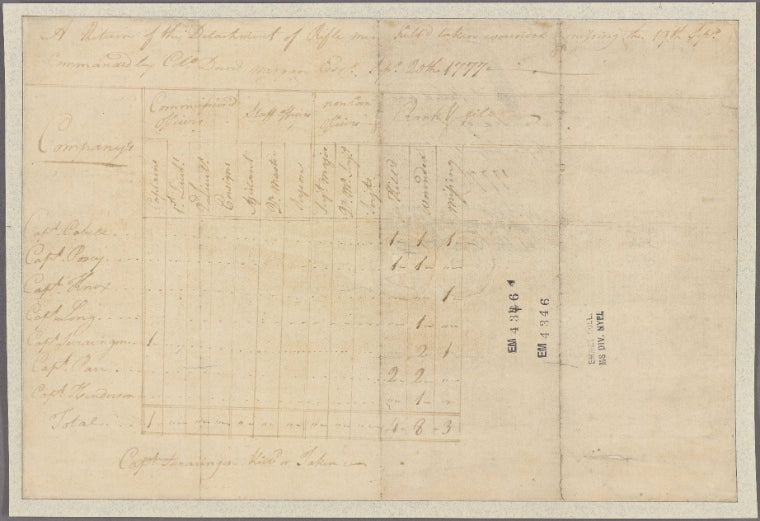 A Return of the Detachment of Rifle men Kill'd taken wounded & missing the 19th Sept.
Commanded by Coll. Morgan Esqr. Sepr. 20th 1777
Companys
Commission'd Officers
Staff officers
non Com officers
Rank & file
Captains
1st Lieuts.
2d Lieuts.
Ensigns
Adjutant
Qr. Master
Sergt. Major
Qr. Mr. Sergt.
Kill'd
Wounded
missing
Capt. Cabell 1 1 1
Capt. Posey 1 1
Capt. Knox 1
Capt. Long 1
Capt. Swearingen 1 2 1
Capt. Parr 2 2
Capt. Henderson 1
Total 1 4 8 3
Capt. Swearingen Kill'd or Taken
EM 4346
EM 4346
EMMET COLL.
MS DIV. NYPL